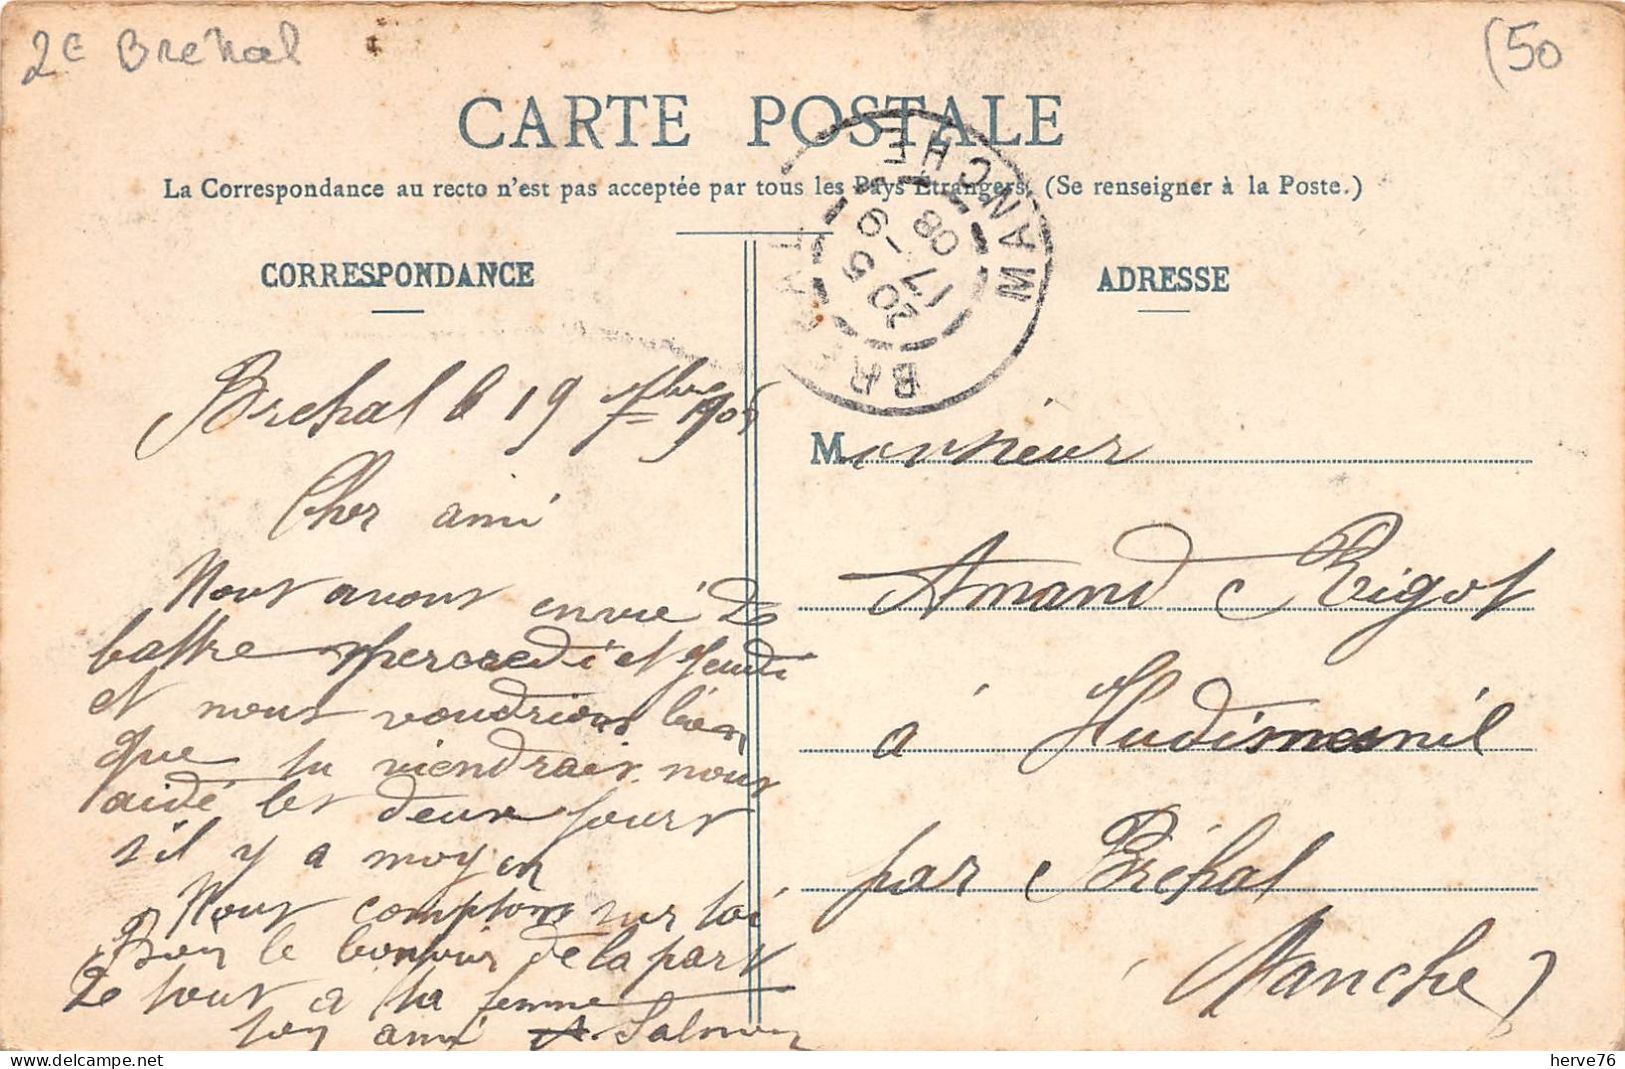 2E Brehal
(50
CARTE POSTALE
La Correspondance au recto n'est pas acceptée par tous les Pays Etrangers. (Se renseigner à la Poste.)
CORRESPONDANCE
ADRESSE
BREHAL
MANCHE
17
20 5
08
Brehal le 19
Cher ami
Nous avons envié de
battre Mercredi et Jeudi
et nous voudrions bien
que tu viendrais nous
aidé les deux jours
s'il y a moyen
Nous comptons sur toi
Bon le bonjour de la part
de tous a ta femme
ton ami A. Salmon
Monsieur
Amand Rigot
à Hudimesnil
par Bréhal
(Manche)
herve76